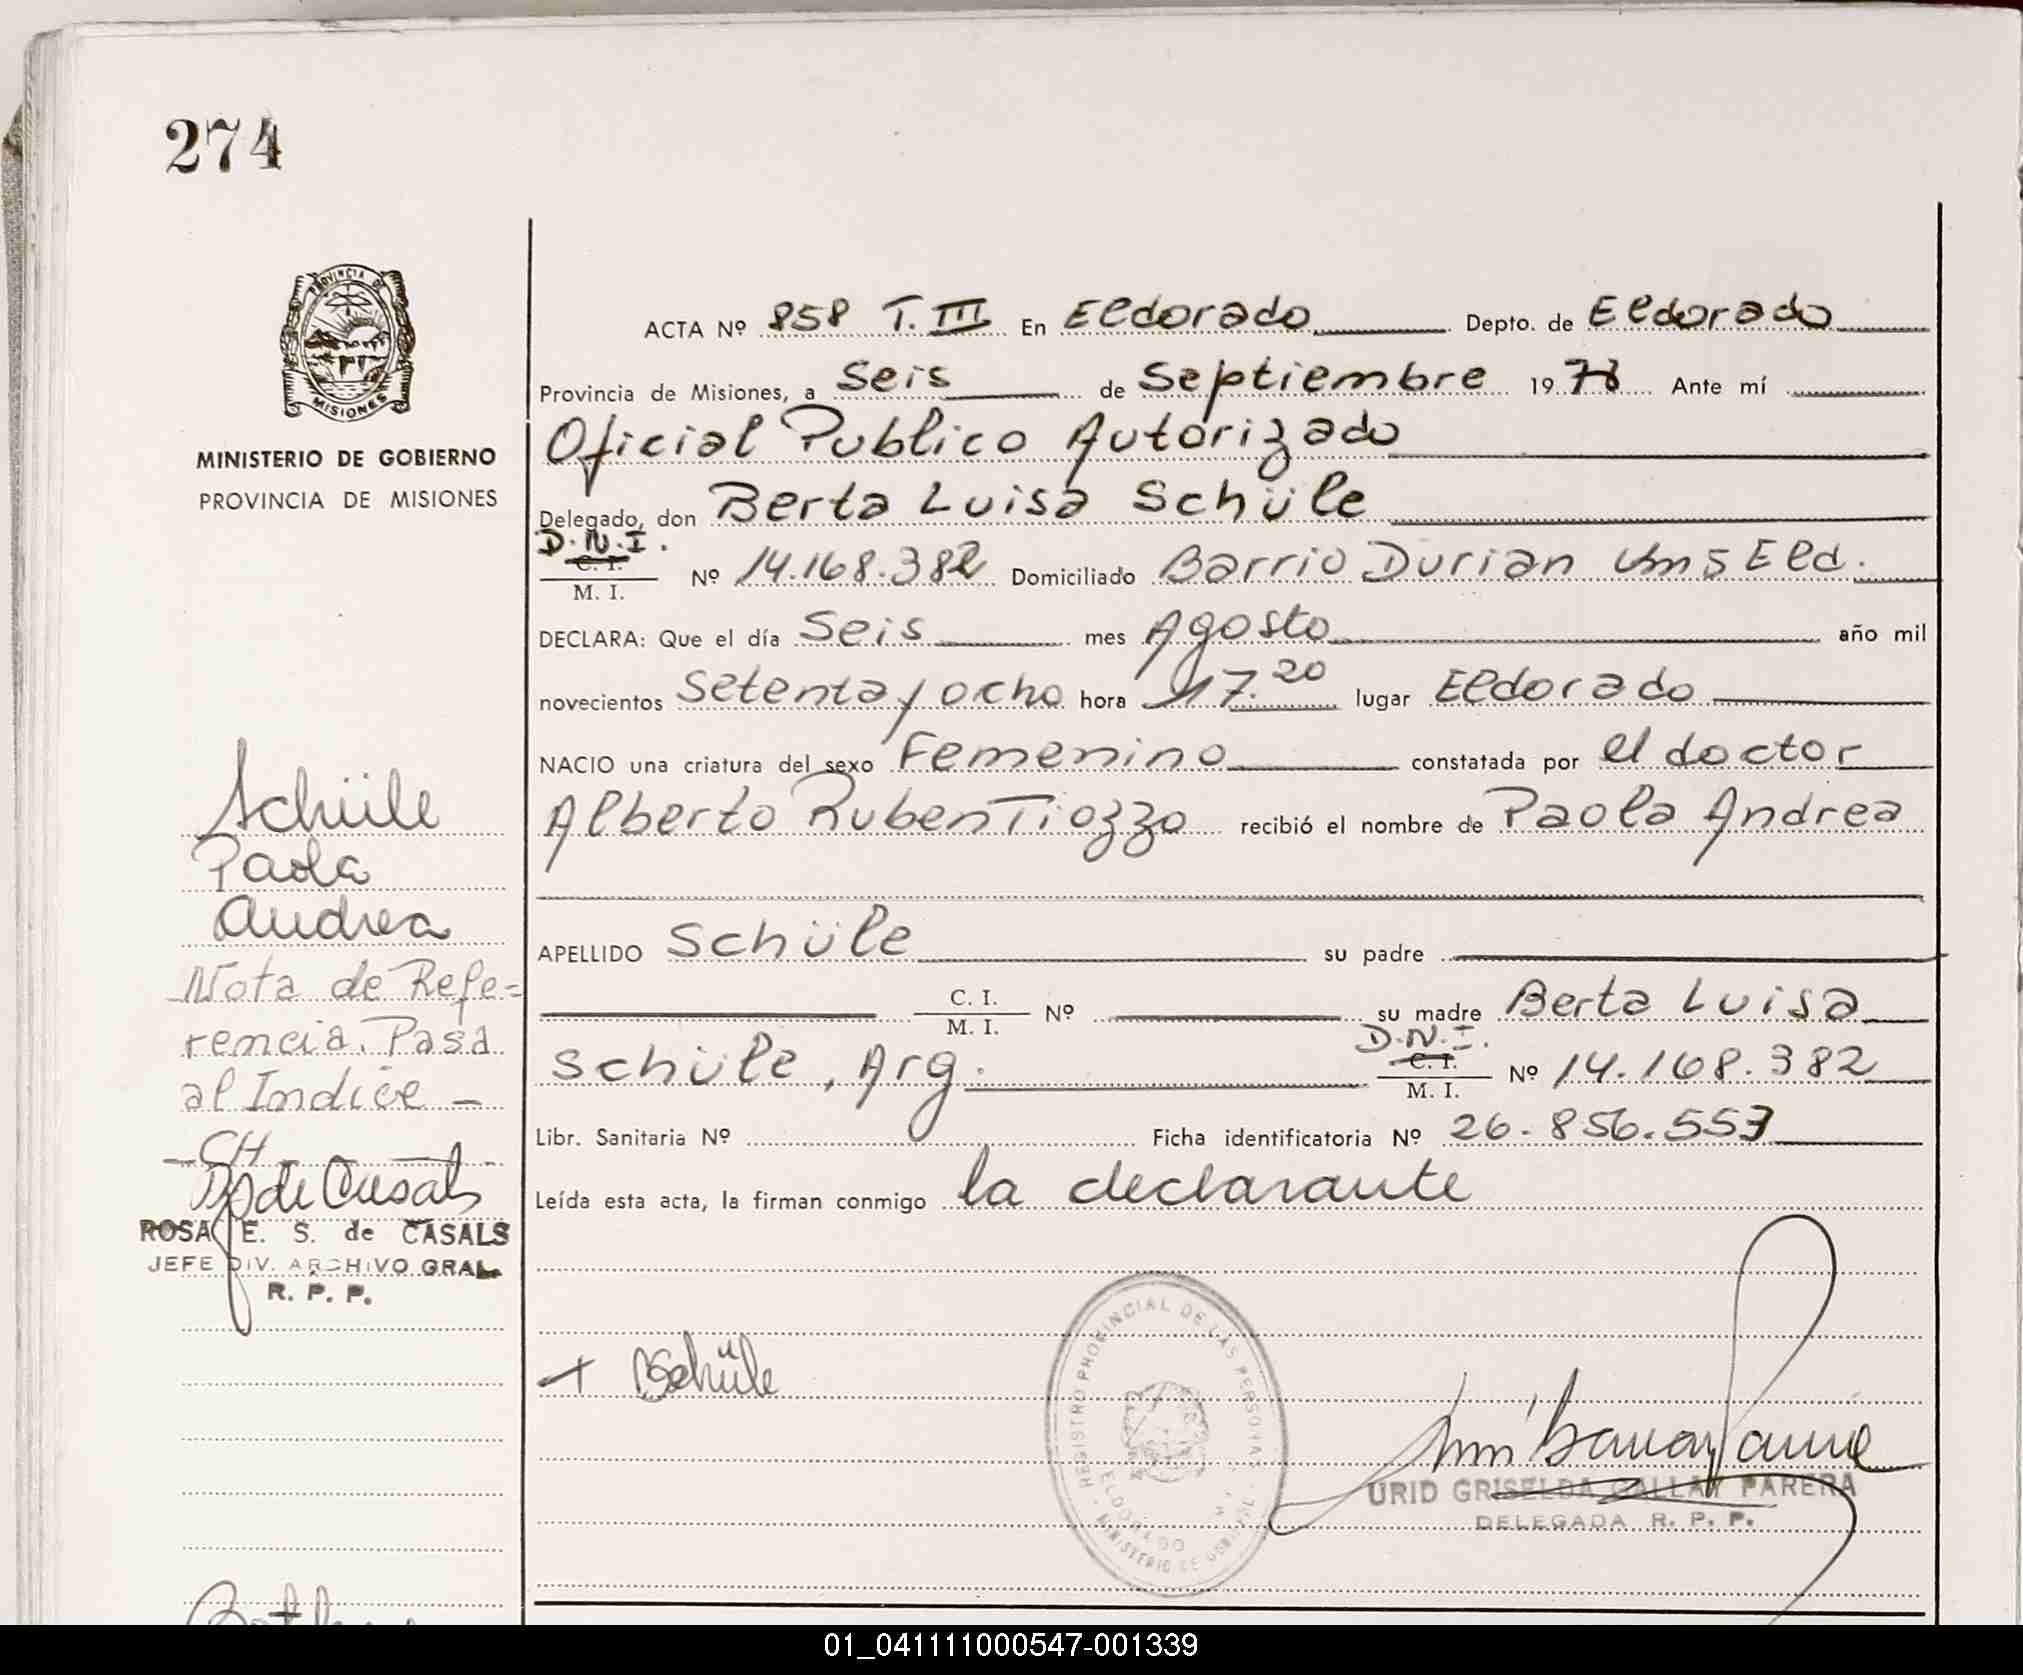 274
PROVINCIA DE
MISIONES
MINISTERIO DE GOBIERNO
PROVINCIA DE MISIONES
ACTA Nº 858 T. III En Eldorado Depto. de Eldorado
Provincia de Misiones, a Seis de Septiembre 1978 Ante mí
Oficial Publico Autorizado
Delegado, don Berta Luisa Schüle
D.N.I.
C. I.
M. I. Nº 14.168.382 Domiciliado Barrio Durian Km 5 Eld.
DECLARA: Que el día Seis mes Agosto año mil
novecientos Setenta y ocho hora 17.20 lugar Eldorado
NACIO una criatura del sexo Femenino constatada por el doctor
Alberto Ruben Tiozzo recibió el nombre de Paola Andrea
APELLIDO Schüle su padre
C. I.
M. I. Nº su madre Berta Luisa
D.N.I.
Schüle, Arg. C. I.
M. I. Nº 14.168.382
Libr. Sanitaria Nº Ficha identificatoria Nº 26.856.553
Leída esta acta, la firman conmigo la declarante
Schüle
Paola
Andrea
Nota de Refe=
rencia. Pasa
al Indice -
CH
de Casals
ROSA E. S. de CASALS
JEFE DIV. ARCHIVO GRAL.
R. P. P.
+ BSchüle
REGISTRO PROVINCIAL DE LAS PERSONAS
ELDORADO
MINISTERIO DE GOBIERNO
URID GRISELDA GALLAY PARERA
DELEGADA R. P. P.
01_041111000547-001339